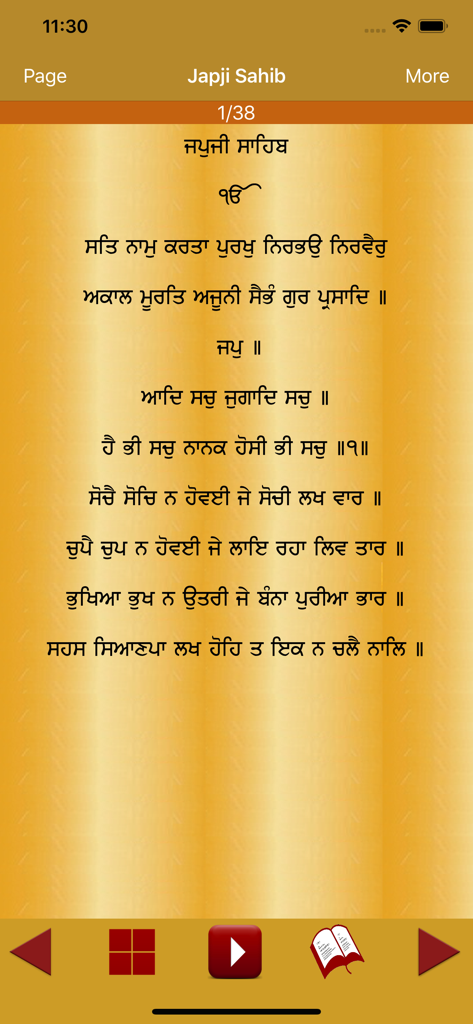 11:30
Page Japji Sahib More
1/38
ਜਪੁਜੀ ਸਾਹਿਬ
ੴ
ਸਤਿ ਨਾਮੁ ਕਰਤਾ ਪੁਰਖੁ ਨਿਰਭਉ ਨਿਰਵੈਰੁ
ਅਕਾਲ ਮੂਰਤਿ ਅਜੂਨੀ ਸੈਭੰ ਗੁਰ ਪ੍ਰਸਾਦਿ ॥
ਜਪੁ ॥
ਆਦਿ ਸਚੁ ਜੁਗਾਦਿ ਸਚੁ ॥
ਹੈ ਭੀ ਸਚੁ ਨਾਨਕ ਹੋਸੀ ਭੀ ਸਚੁ ॥੧॥
ਸੋਚੈ ਸੋਚਿ ਨ ਹੋਵਈ ਜੇ ਸੋਚੀ ਲਖ ਵਾਰ ॥
ਚੁਪੈ ਚੁਪ ਨ ਹੋਵਈ ਜੇ ਲਾਇ ਰਹਾ ਲਿਵ ਤਾਰ ॥
ਭੁਖਿਆ ਭੁਖ ਨ ਉਤਰੀ ਜੇ ਬੰਨਾ ਪੁਰੀਆ ਭਾਰ ॥
ਸਹਸ ਸਿਆਣਪਾ ਲਖ ਹੋਹਿ ਤ ਇਕ ਨ ਚਲੈ ਨਾਲਿ ॥